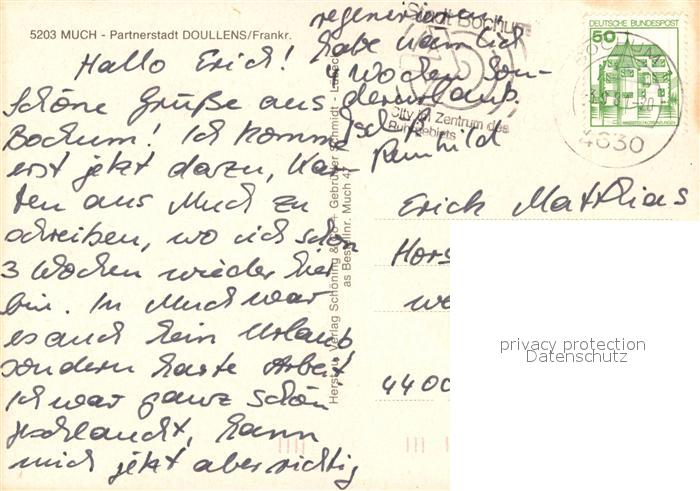 5203 MUCH - Partnerstadt DOULLENS/Frankr.
Hallo Erich!
Schöne Grüße aus
Bochum! Ich komme
erst jetzt dazu, Kar-
ten aus Much zu
schreiben, wo ich schon
3 Wochen wieder hier
bin. In Much war
es auch kein Urlaub
sondern harte Arbeit
Ich war ganz schön
geschlaucht, kann
mich jetzt aber richtig
regenerieren,
habe nämlich
4 Wochen Son-
derurlaub.
Tschüß
Reinhild
Herst. u. Verlag Schöning & Co + Gebrüder Schmidt - Lübeck
as Bestellnr. Much 47
Stadt Bochum
City im Zentrum des
Ruhrgebiets
DEUTSCHE BUNDESPOST
50
BOCHUM
4630
Erich Matthias
Hors
we
4400
privacy protection
Datenschutz